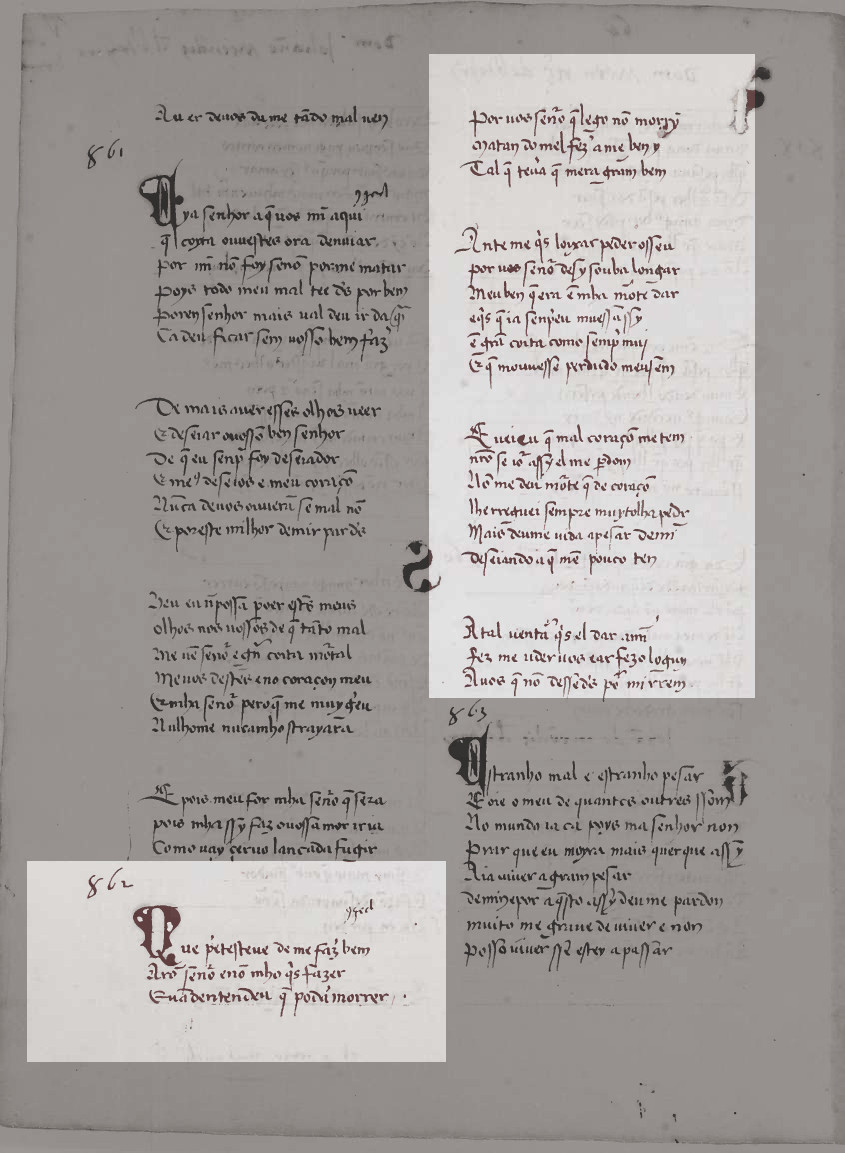 Au er deuos du me tãdo mal uen
861
ya senhor a q̃ uos mĩ aqui
q̃ coyta ouuestes ora denuiar
Por mĩ nõ foy senõ por me matar
Poys todo meu mal tee d's por bem
Poren senhor mais ual deu ir daq̃
Ca deu ficar sem uosso bem faz'
De mais auer esses olhos ueer
E deseiar o uosso ben senhor
De q̃ eu senp̃ foy deseiador
E me' deseios e meu coraçõ
Nũca deuos ouuerã se mal nõ
E por este milhor demir par d's
olhos nos uossos de q̃ tãto mal
Me uẽ señor e grã coita mõtal
Me uos destes e no coraçon meu
E mha señor pero q̃ me muy g'eu
Nulhome nu ca mho strayará
E pois meu for mha señor q̃ sera
pois mha ssy faz o uossa mor ir ia
Como uay çeruo lançada fugir
862
Que p'etesteue de me faz' bem
Nro señor e nõ mho q̃s fazer
E uã dentendeu q̃ podu' morrer
Por uos señor q̃ lego nõ morry
Matan do mel fez' a me ben y
Tal q̃ teu'a q̃ mera gram bem
Ante me q̃s loixar peder osseu
por uos señor desy souba longar
Meu ben q̃ era ẽ mha mõte dar
e q̃s q̃ ia senp'eu muess assy
ẽ grã coita como semp mui
E q̃ mouuesse perdudo meu sem
E uei eu q̃ mal coraçõ me tem
nrõ se ior assy el me pdom
Nõ me deu mõte q̃ de coraçõ
lhe rreguei sempre muytolha pedr
Mais deume uida a pesar demĩ
deseiando a q̃ mẽ pouco ten
A tal uentã q̃s el dar a mĩ
fez me uder uos e ar fezo loguy
A uos q̃ nõ dess e d's por mi rrem
863
stranho mal e estranho pesar
E oie o meu de quantos outres ssom
No mundo ia ca poys ma senhor non
Prar que eu moyra mais quer que assy
Aia uiuer a gram pesar
de mine por a q̃sto assy deu me pardon
muito me graue de uiuer e non
Posso uiuer sse estey a passar